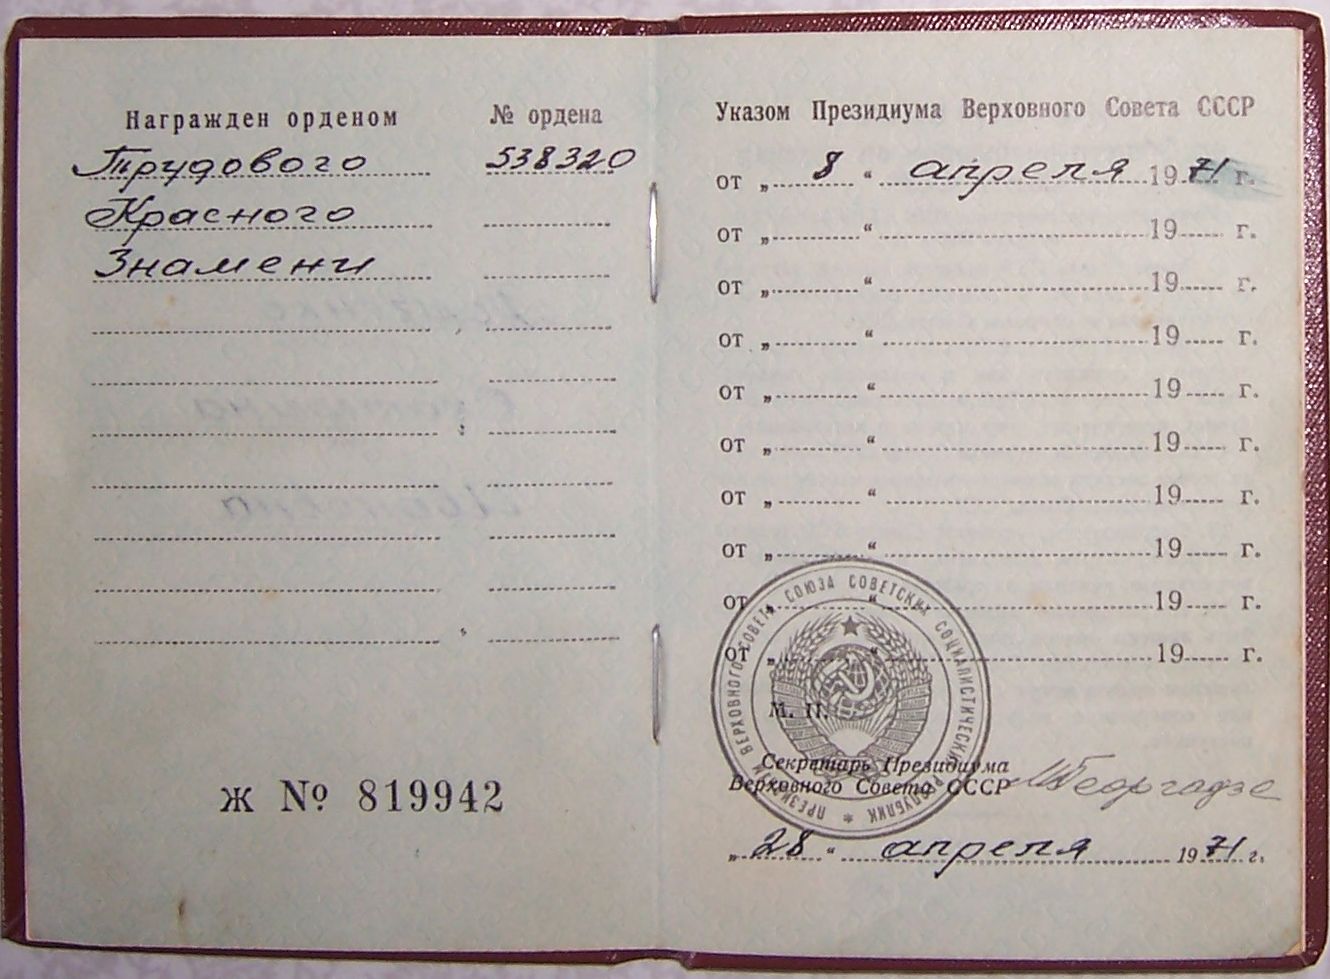 Награжден орденом № ордена
Трудового 538320
Красного
Знамени
ж № 819942
Указом Президиума Верховного Совета СССР
от „ 8 “ апреля 1971 г.
от „ “ 19 г.
от „ “ 19 г.
от „ “ 19 г.
от „ “ 19 г.
от „ “ 19 г.
от „ “ 19 г.
от „ “ 19 г.
от „ “ 19 г.
от „ “ 19 г.
ПРЕЗИДИУМ ВЕРХОВНОГО СОВЕТА СОЮЗА СОВЕТСКИХ СОЦИАЛИСТИЧЕСКИХ РЕСПУБЛИК *
М. П.
Секретарь Президиума
Верховного Совета СССР МГеоргадзе
„ 28 “ апреля 1971 г.